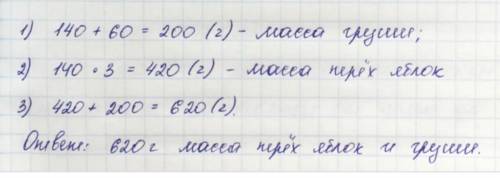 1) 140 + 60 = 200 (г) - масса груши;
2) 140 • 3 = 420 (г) - масса трёх яблок
3) 420 + 200 = 620 (г).
Ответ: 620 г масса трёх яблок и груши.